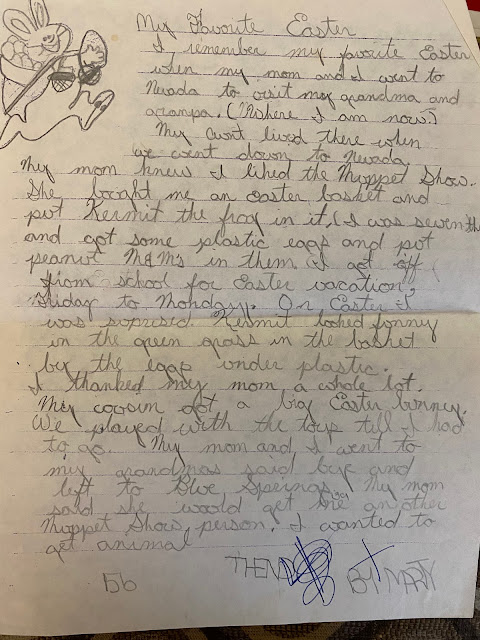 My Favorite Easter
I remember my favorite Easter
when my mom and I went to
Nevada to visit my grandma and
granpa. (Where I am now.)
My aunt lived there when
we went down to Nevada.
My mom knew I liked the Muppet Show.
She bought me an easter basket and
put Kermit the frog in it, (I was seven the
and got some plastic eggs and put
peanut M&M's in them I got off
from school for Easter vacation,
Friday to Monday. On Easter I
was suprised. Kermit looked funny
in the green grass in the basket
by the eggs under plastic.
I thanked my mom a whole lot.
My cousin got a big Easter bunney.
We played with the toys till I had
to go. My mom and I went to
my grandmas said bye and
left to Blue Speings. My mom
said she would get me another
Muppet Show person. I wanted to
get animal
THEND
BY MARTY